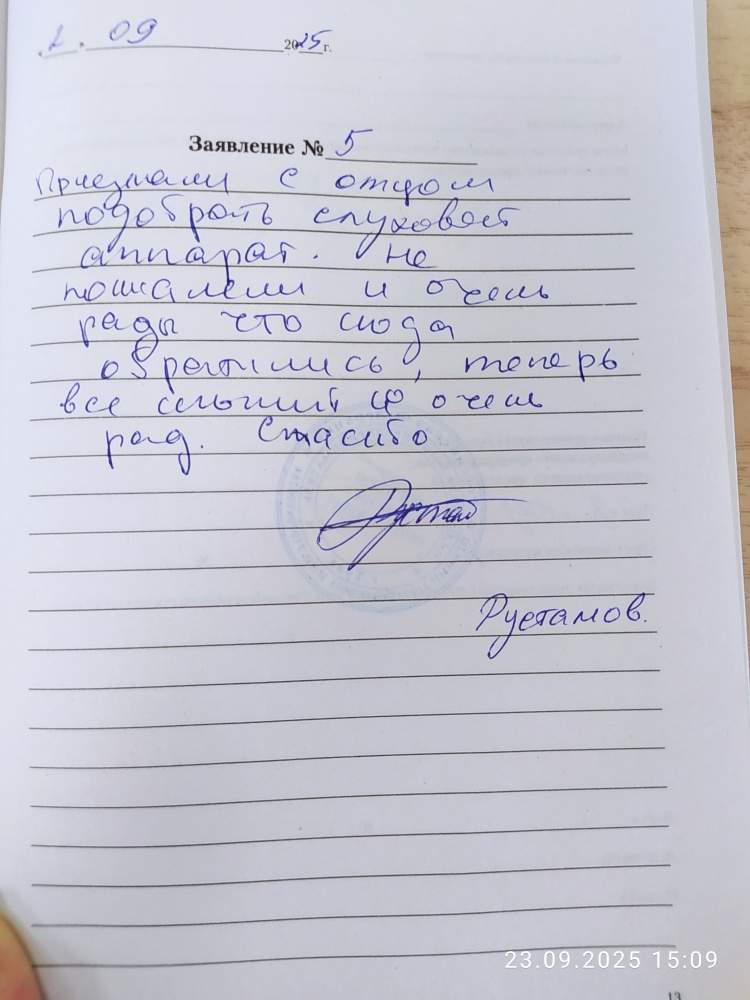 2. 09 2025 г.
Заявление № 5
Приезжали с отцом
подобрать слуховой
аппарат. Не
пожалели и очень
рады что сюда
обратились, теперь
все слышит и очень
рад. Спасибо
Рустамов.
13
23.09.2025 15:09